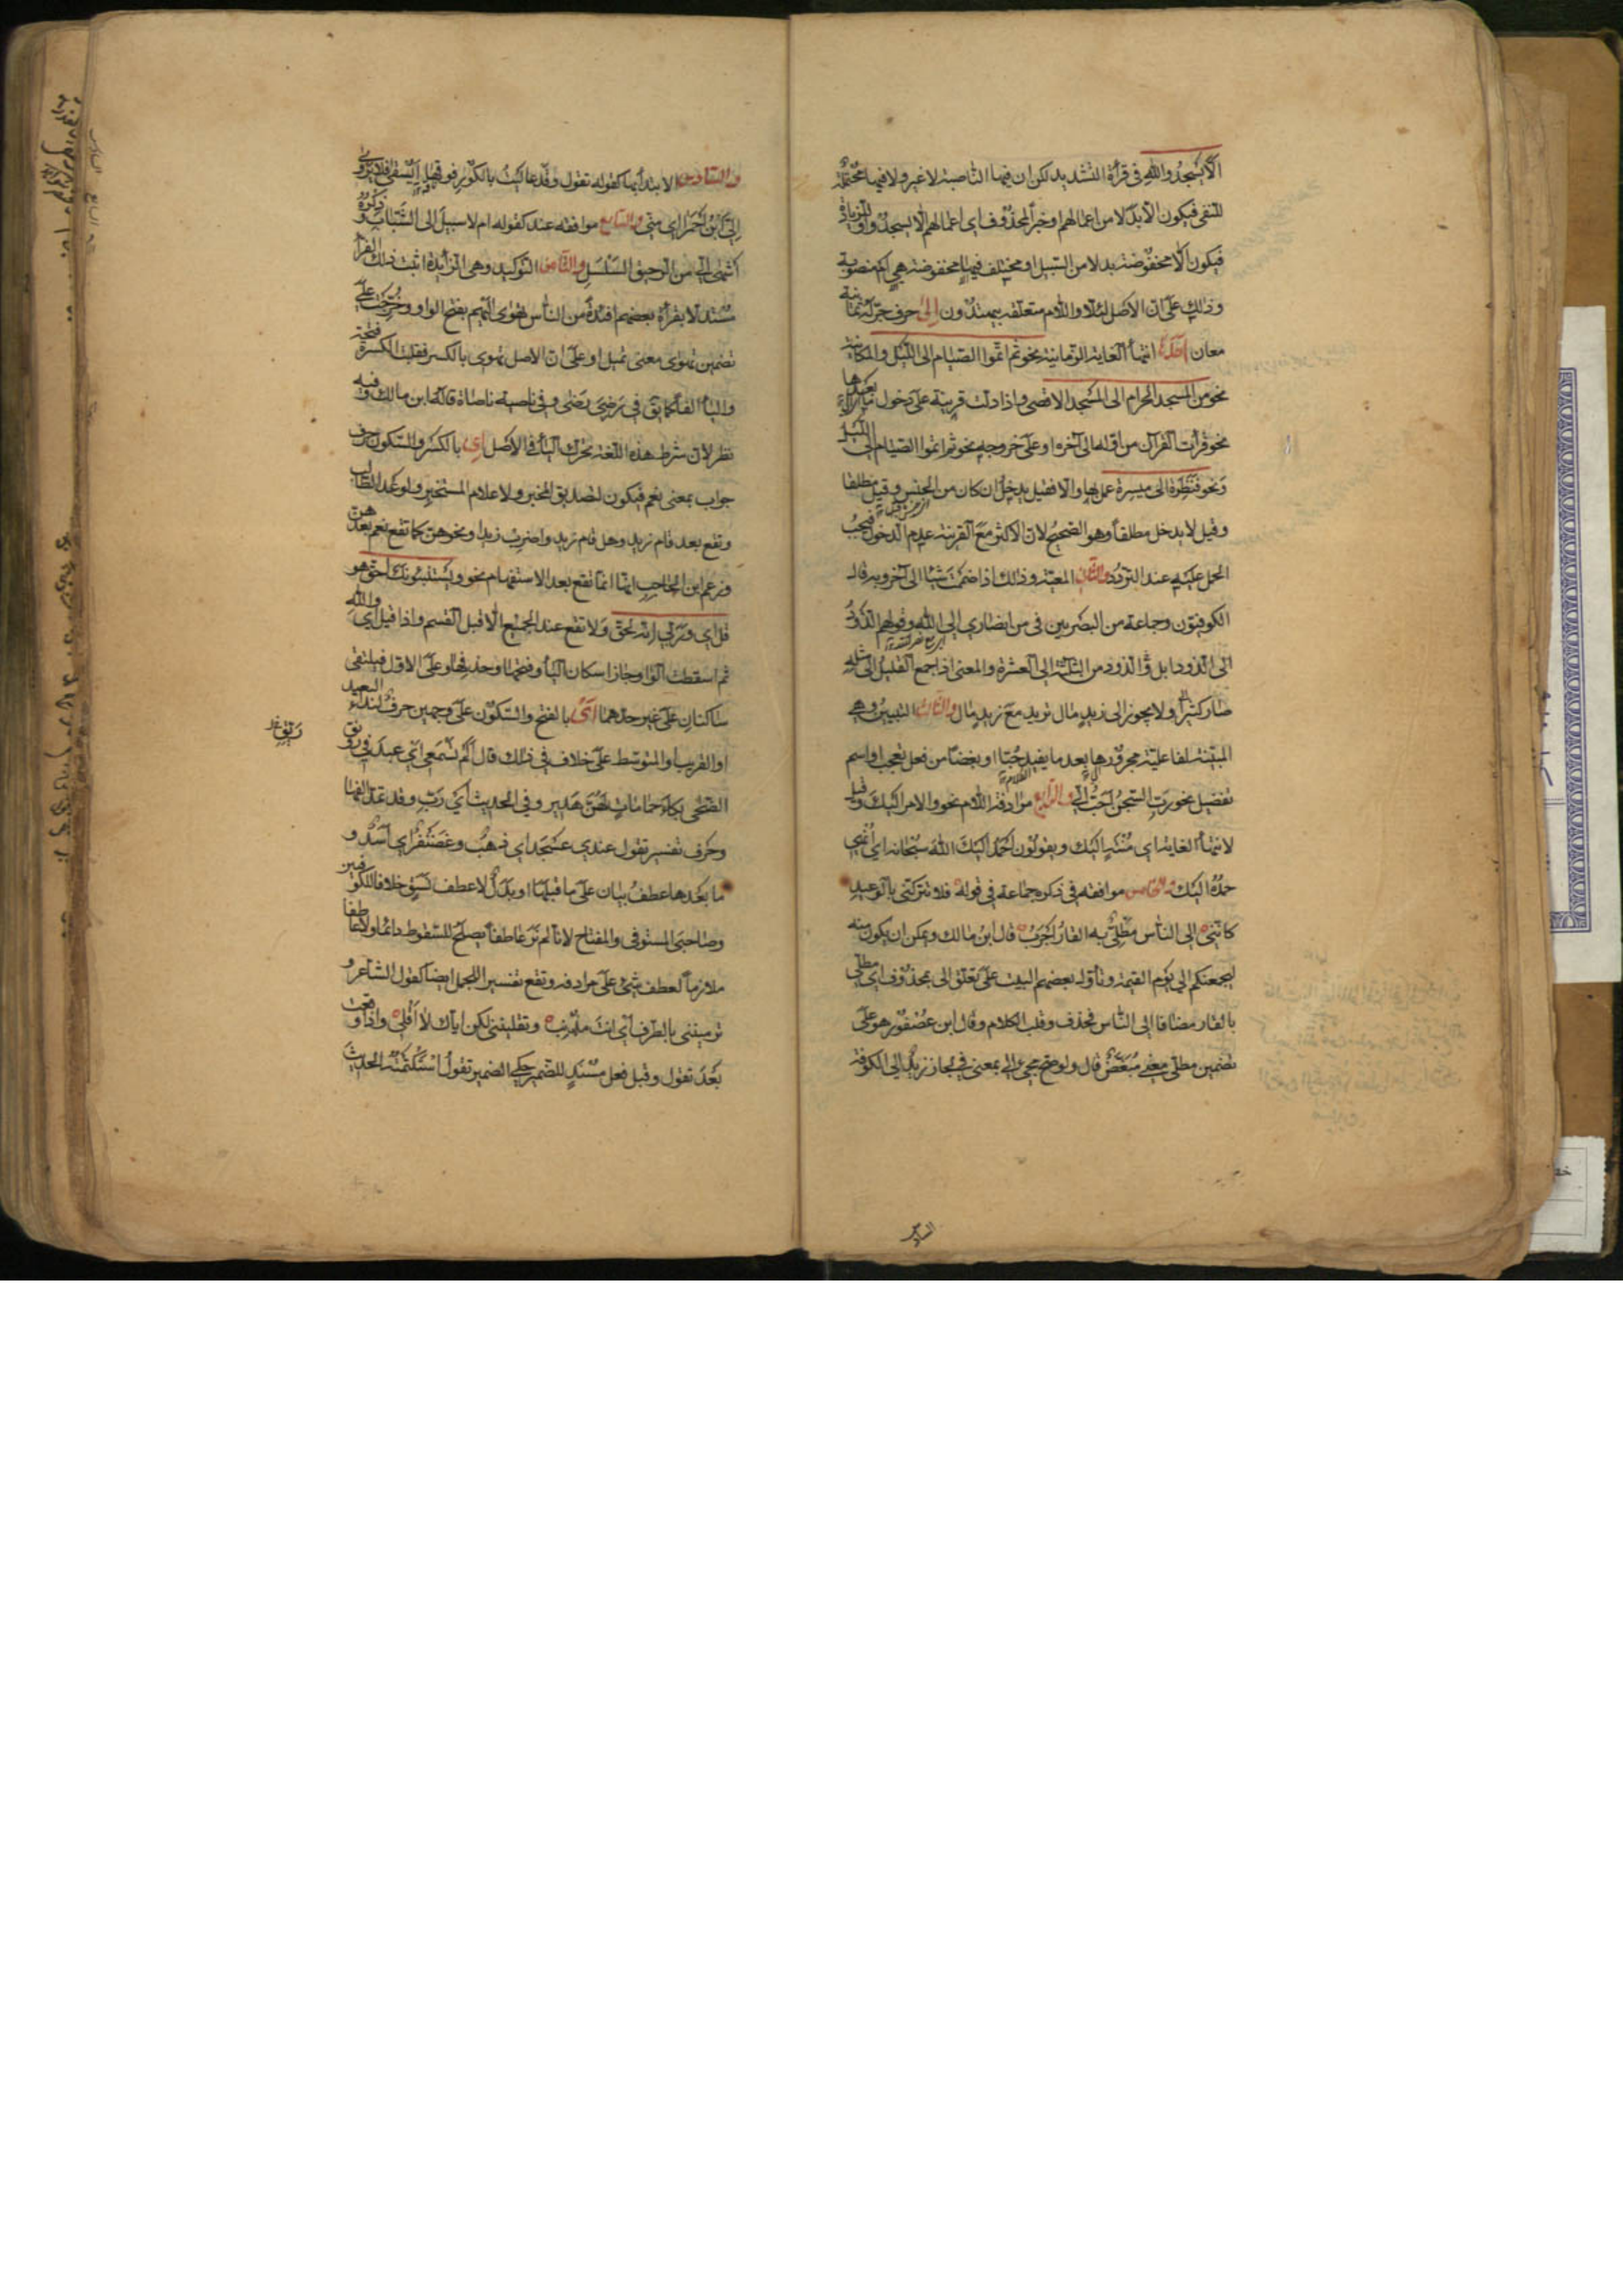 الا يسجدوا لله في قرأة التشديد لكن ان فيها الناصبة لا غير ولا فيها محتملة
للنفي فيكون الا بدلا من اعمالهم او خبرا لمحذوف اي اعمالهم الا يسجدوا وللزيادة
فيكون الا مخفوضة بدلا من السبيل او مختلف فيها امخفوضة هي ام منصوبة
وذلك على ان الاصل لئلا واللام متعلقة بيهتدون إلى حرف جر له ثمانية
معان احدها انتهاأ الغاية الزمانية نحو ثم اتموا الصيام الى الليل والمكانية
نحو من المسجد الحرام الى المسجد الاقصى واذا دلت قرينة على دخول ما بعدها
نحو قرأت القرآن من اوله الى آخره او على خروجه نحو ثم اتموا الصيام الى الليل
ونحو فنظرة الى ميسرة عمل بها والا فقيل يدخل ان كان من الجنس وقيل مطلقا
وقيل لا يدخل مطلقا وهو الصحيح لان الاكثر مع القرينة عدم الدخول فيجب
الحمل عليه عند التردد والثاني المعية وذلك اذا ضممت شيئا الى آخر وبه قال
الكوفيون وجماعة من البصريين في من انصاري الى الله وقولهم الذود
الى الذود ابل والذود من الثلثة الى العشرة والمعنى اذا جمع القليل الى مثله
صار كثيرا ولا يجوز الى زيد مال تريد مع زيد مال والثالث التبيين وهي
المبينة لفاعلية مجرورها بعد ما يفيد حبا او بغضا من فعل تعجب او اسم
تفضيل نحو رب السجن احب الي والرابع مرادفة اللام نحو والامر اليك وقيل
لانتهاأ الغاية اي منته اليك ويقولون احمد اليك الله سبحانه اي انهي
حمده اليك والخامس موافقة في ذكره جماعة في قوله فلا تتركني بالوعيد
كانني الى الناس مطلي به القار اجرب قال ابن مالك ويمكن ان يكون منه
ليجمعنكم الى يوم القيمة وتأول بعضهم البيت على تعلق الى بمحذوف اي مطلي
بالقار مضافا الى الناس فحذف وقلب الكلام وقال ابن عصفور هو على
تضمين مطلي معنى مبغض قال ولو صح مجيئ الى بمعنى في لجاز زيد الى الكوفة
والسادس الابتدأ بها كقوله تقول وقد عاليت بالكور فوقها ايسقى فلا يروى
إلي ابن احمرا اي مني والسابع موافقة عند كقوله ام لا سبيل الى الشباب وذكره
اشهى الي من الرحيق السلسل والثامن التوكيد وهي الزايدة اثبت ذلك الفرأ
مستدلا بقرأة بعضهم افئدة من الناس تهوى اليهم بفتح الواو وخرجت على
تضمين تهوى معنى تميل او على ان الاصل تهوي بالكسر فقلبت الكسرة فتحة
واليأ الفا كما يق في رضي رضى وفي ناصية ناصاة قاله ابن مالك وفيه
نظر لان شرط هذه اللغة تحرك اليأ في الاصل اي بالكسر والسكون حرف
جواب بمعنى نعم فيكون لتصديق المخبر ولاعلام المستخبر ولوعد الطالب
وتقع بعد قام زيد وهل قام زيد واضرب زيدا ونحوهن كما تقع نعم بعدهن
وزعم ابن الحاجب انها انما تقع بعد الاستفهام نحو ويستنبئونك احق هو
قل اي وربي انه لحق ولا تقع عند الجميع الا قبل القسم واذا قيل اي والله
ثم اسقطت الواو جاز اسكان اليأ وفتحها وحذفها وعلى الاول فيلتقي
ساكنان على غير حدهما اي بالفتح والسكون على وجهين حرف لندأ البعيد
او القريب او المتوسط على خلاف في ذلك قال الم تسمعي اي عبد في رونق
الضحى بكاء حمامات لهن هدير وفي الحديث اي رب وقد تمد الفها
وحرف تفسير تقول عندي عسجد اي ذهب وغضنفر اي اسد و
ما بعدها عطف بيان على ما قبلها او بدل لا عطف نسق خلافا للكوفيين
وصاحبي المستوفى والمفتاح لانا لم نر عاطفا يصلح للسقوط دائما ولا عاطفا
ملازما لعطف شئ على مرادفه وتقع تفسيرا للجمل ايضا كقول الشاعر و
ترمينني بالطرف اي انت مذنب وتقلينني لكن اياك لا اقلي واذا وقعت
بعد تقول وقبل فعل مسند للضمير حكي الضمير تقول استكتمته الحديث